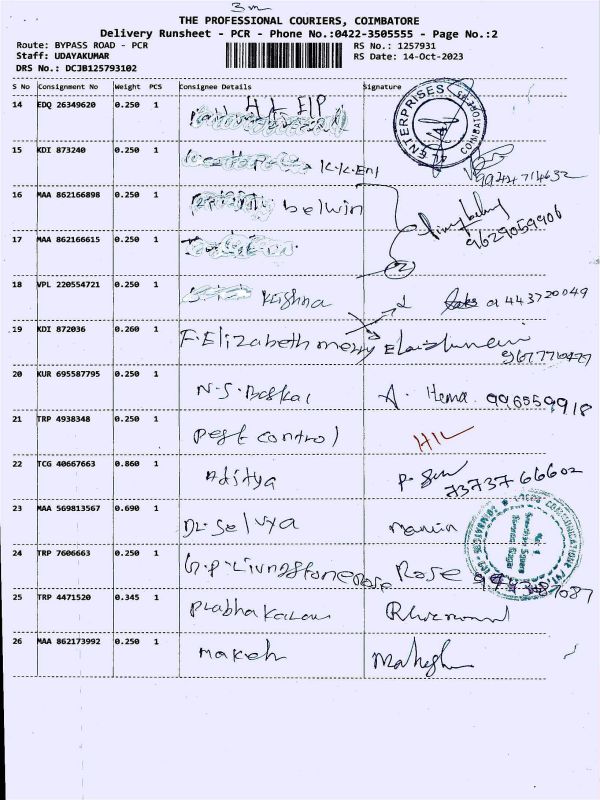 3m
THE PROFESSIONAL COURIERS, COIMBATORE
Delivery Runsheet - PCR - Phone No.:0422-3505555 - Page No.:2
Route: BYPASS ROAD - PCR
Staff: UDAYAKUMAR
DRS No.: DCJB125793102
RS No.: 1257931
RS Date: 14-Oct-2023
S No Consignment No Weight PCS Consignee Details Signature
14 EDQ 26349620 0.250 1 ENTERPRISES
15 KDI 873240 0.250 1 K.K.Ent
16 MAA 862166898 0.250 1 belwin
9629059906
17 MAA 862166615 0.250 1
2
18 VPL 220554721 0.250 1 Krishna
19 KDI 872036 0.260 1 F.Elizabeth merry
20 KUR 695587795 0.250 1 N.S.Baskar A. Hema 996559918
21 TRP 4938348 0.250 1 pest control
22 TCG 40667663 0.860 1 Aditya 7373766602
23 MAA 569813567 0.690 1 DL.Selvya
24 TRP 7606663 0.250 1 G.P.Livingstone Rose Rose
25 TRP 4471520 0.345 1 Prabhakaran
26 MAA 862173992 0.250 1 makeh Mahesh